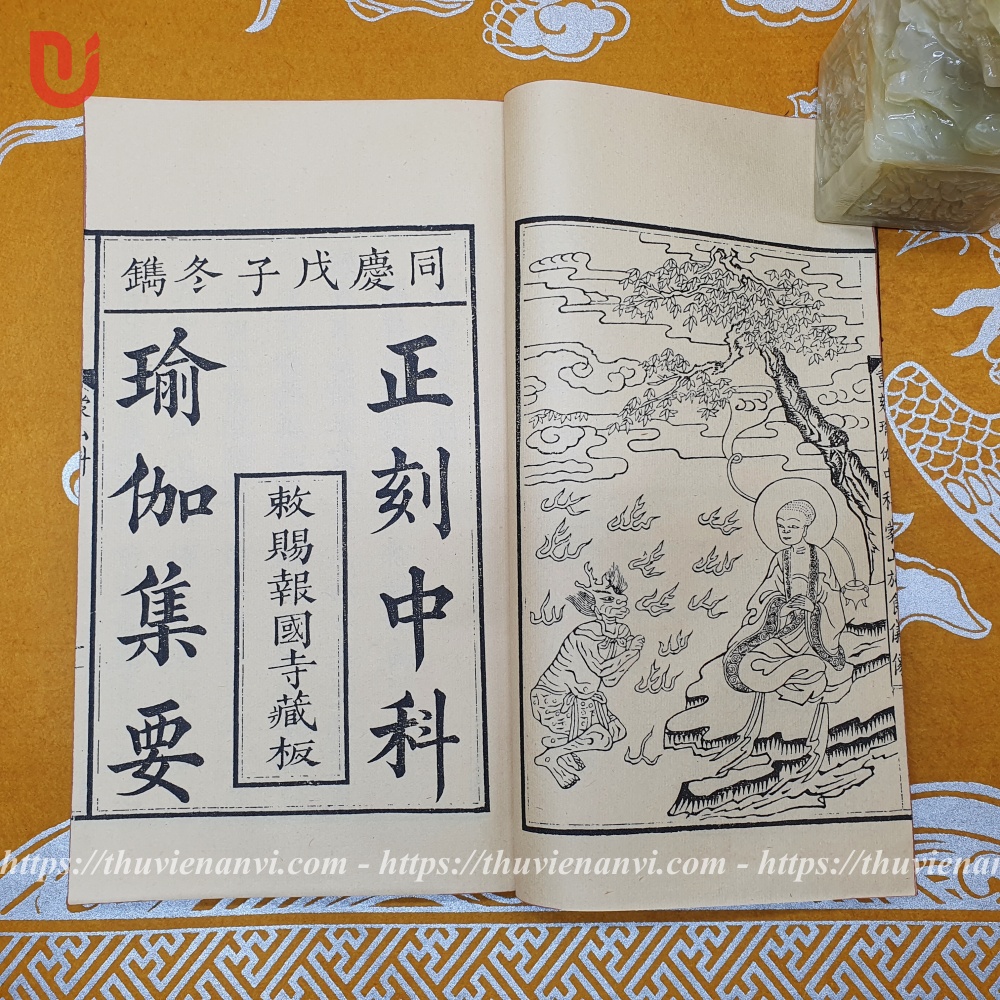 同慶戊子冬鐫
正刻中科
敕賜報國寺藏板
瑜伽集要
https://thuvienanvi.com - https://thuvienanvi.com - https://thuviena